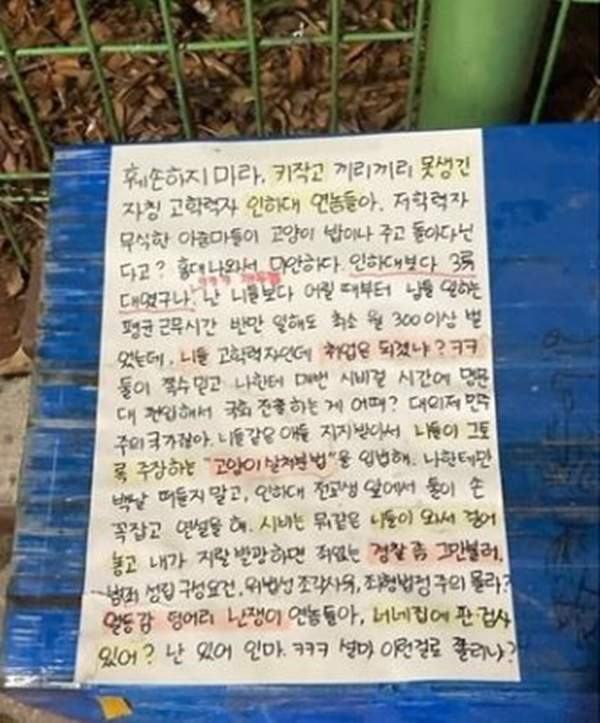 훼손하지 마라. 키작고 끼리끼리 못생긴
자칭 고학력자 인하대 연놈들아. 저학력자
무식한 아줌마들이 고양이 밥이나 주고 돌아다닌
다고? 홍대 나와서 미안하다. 인하대보다 3류
대였구나. 난 니들보다 어릴 때부터 남들 일하는
평균 근무시간 반만 일해도 최소 월 300이상 벌
었는데, 니들 고학력자인데 취업은 되겠냐? ㅋㅋ
둘이 쪽수 믿고 나한테 매번 시비걸 시간에 명문
대 편입해서 국회 진출하는 게 어때? 대의제 민주
주의 국가잖아. 니들같은 애들 지지받아서 니들이 그토
록 주장하는 "고양이 살처분법"을 입법해. 나한테만
백날 떠들지 말고, 인하대 전교생 앞에서 둘이 손
꼭잡고 연설을 해. 시비는 뭐같은 니들이 와서 걸어
놓고 내가 지랄발광하면 죄없는 경찰 좀 그만불러.
범죄 성립 구성요건, 위법성 조각사유, 죄형법정주의 몰라?
열등감 덩어리 난쟁이 연놈들아, 너네집에 판·검사
있어? 난 있어 인마. ㅋㅋㅋ 설마 이런걸로 쫄리냐?